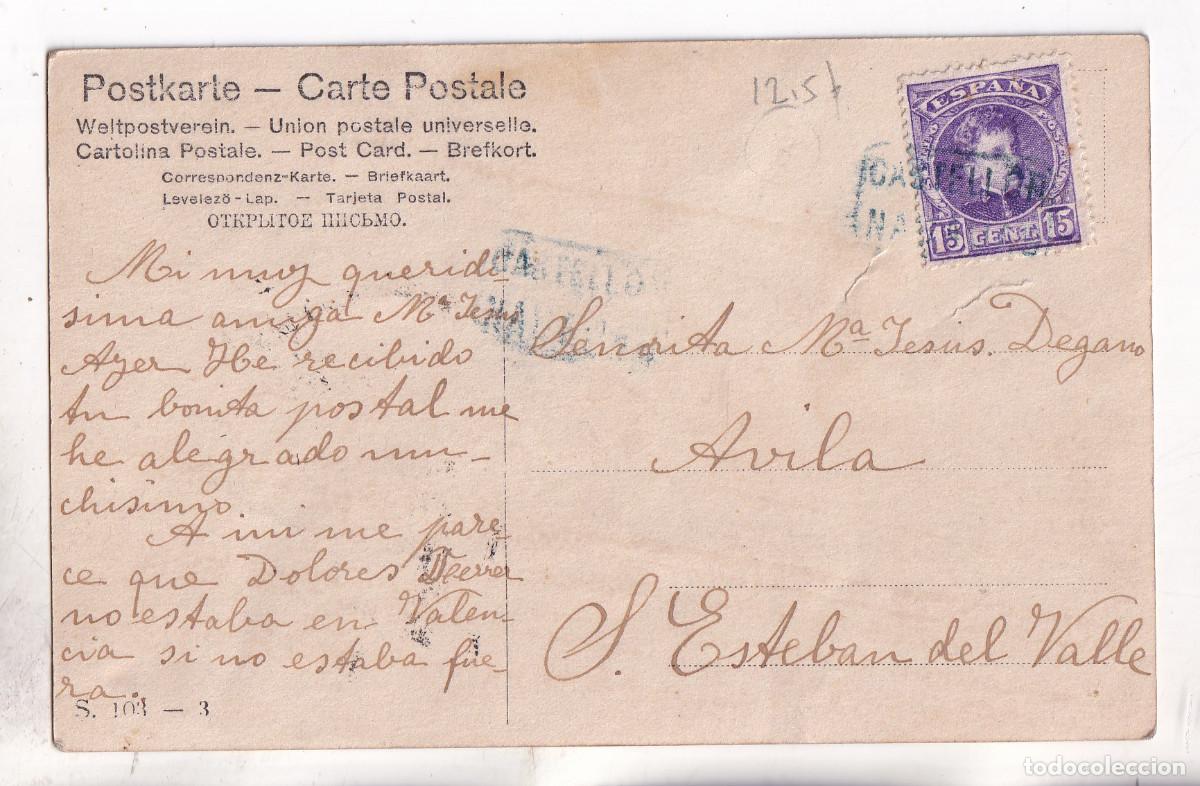 Postkarte — Carte Postale
Weltpostverein. — Union postale universelle.
Cartolina Postale. — Post Card. — Brefkort.
Correspondenz-Karte. — Briefkaart.
Levelező-Lap. — Tarjeta Postal.
ОТКРЫТОЕ ПИСЬМО.
12,5
ESPAÑA
15 CENT. 15
CASTELLON
CASTELLO
Mi muy queridi
sima amiga Mª Jesus
Ayer He recibido
tu bonita postal me
he alegrado mu-
chisimo.
A mi me pare-
ce que Dolores
no estaba en Valen-
cia si no estaba fue-
ra.
S. 103 — 3
Señorita Mª Jesus. Degano
Avila
S. Esteban del Valle
todocoleccion